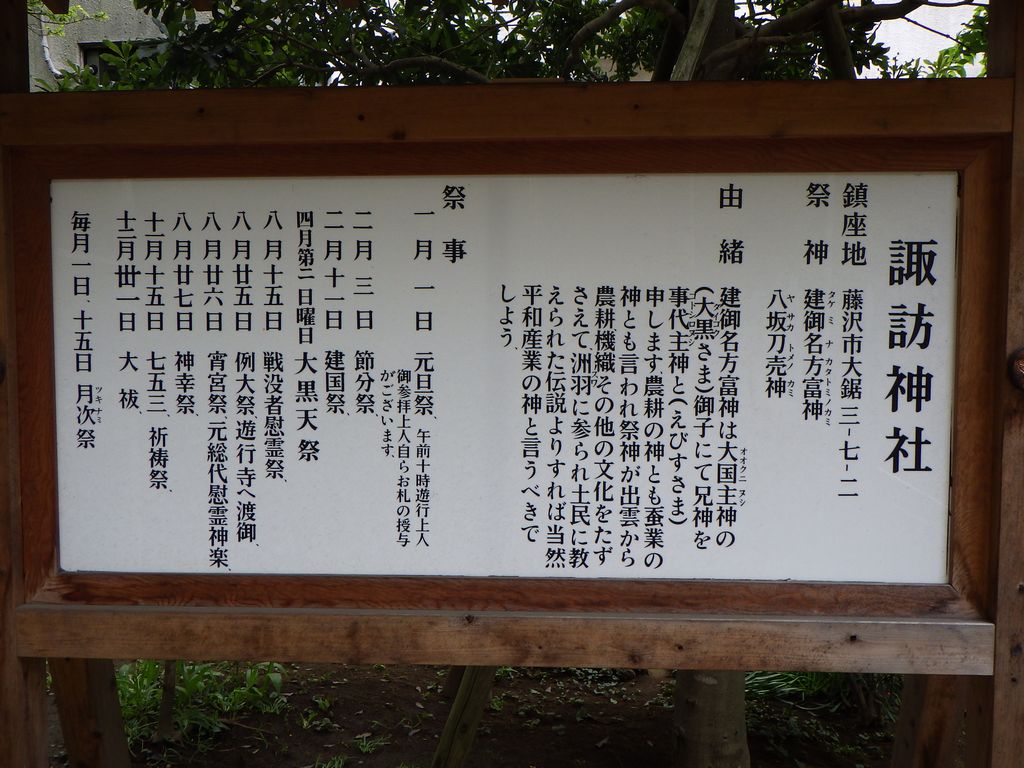 諏訪神社
鎮座地 藤沢市大鋸三-七-二
祭神 建御名方富神
八坂刀売神
由緒 建御名方富神は大国主神の
(大黒さま)御子にて兄神を
事代主神と(えびすさま)
申します農耕の神とも蚕業の
神とも言われ祭神が出雲から
農耕機織その他の文化をたず
さえて洲羽に参られ土民に教
えられた伝説よりすれば当然
平和産業の神と言うべきで
しよう、
祭事
一月一日 元旦祭、午前十時遊行上人
御参拝上人自らお札の授与
がございます、
二月三日 節分祭、
二月十一日 建国祭、
四月第二日曜日 大黒天祭
八月十五日 戦没者慰霊祭、
八月廿五日 例大祭、遊行寺へ渡御、
八月廿六日 宵宮祭、元総代慰霊神楽、
八月廿七日 神幸祭、
十一月十五日 七五三、祈祷祭、
十二月卅一日 大祓、
毎月一日、十五日 月次祭